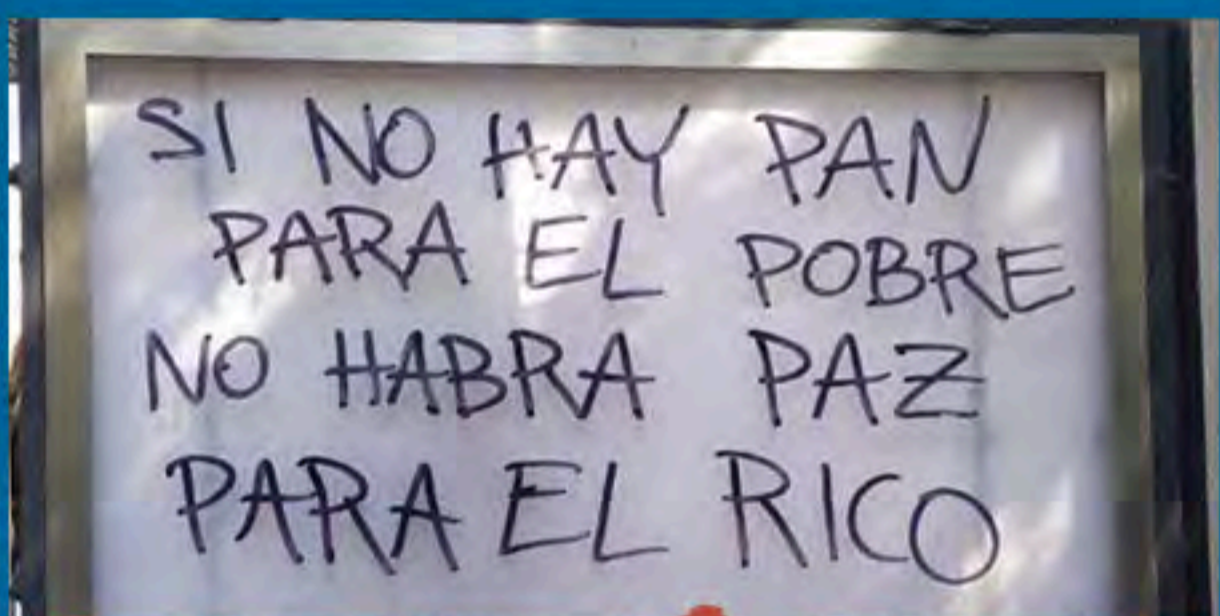 SI NO HAY PAN
PARA EL POBRE
NO HABRA PAZ
PARA EL RICO